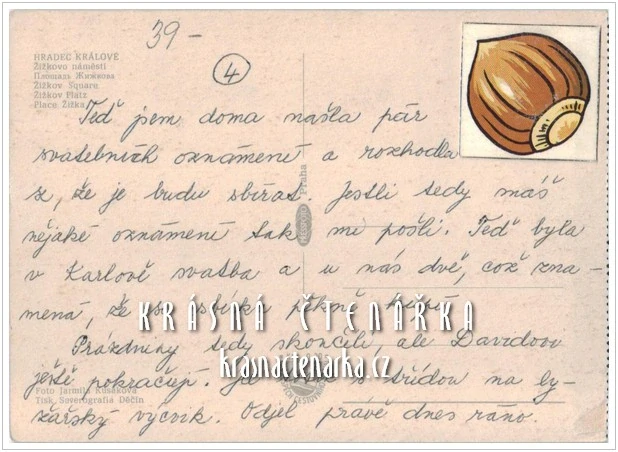 39-
4
HRADEC KRÁLOVÉ
Žižkovo náměstí
Площадь Жижкова
Žižkov Square
Žižkov Platz
Place Žižka
Teď jsem doma našla pár
svatebních oznámení a rozhodla
se, že je budu sbírat. Jestli tedy máš
nějaké oznámení tak mi pošli. Teď byla
v Karlově svatba a u nás dvě, což zna-
mená, že se sbírka pěkně
KRÁSNÁ ČTENÁŘKA
Prázdniny tedy skončili, ale Davidovi
krasnactenarka.cz
ještě pokračují. Je s třídou na ly-
žařský výcvik. Odjel právě dnes ráno.
Praha
Foto Jarmila Kusáková
Tisk Severografia Děčín